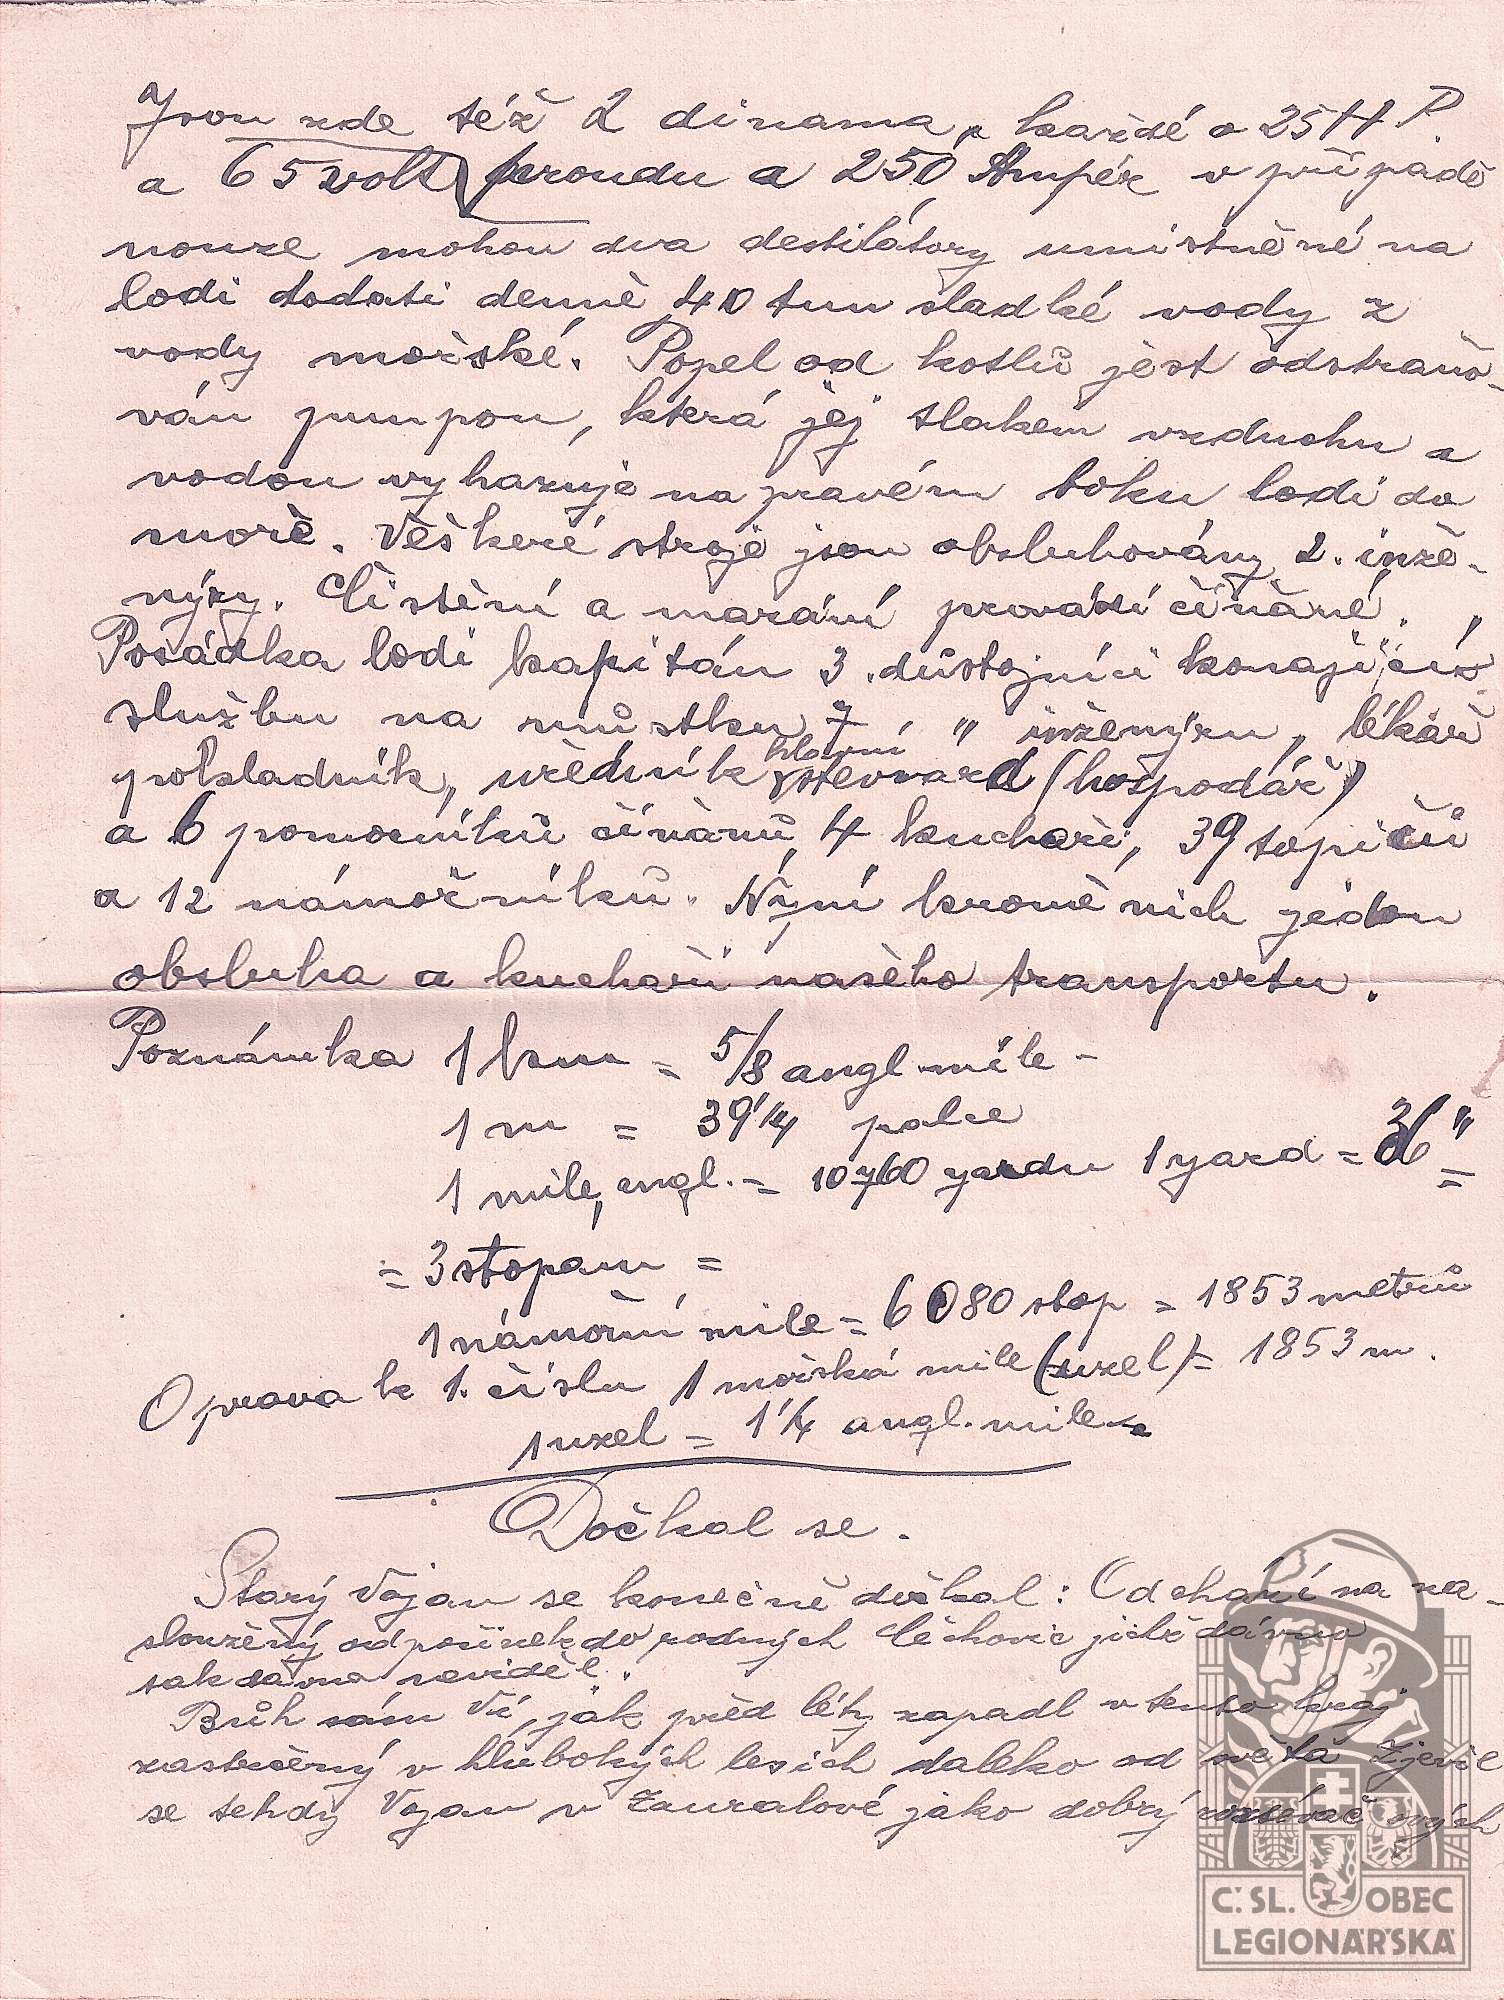 Jsou zde též 2 dinama, každé o 25 HP.
a 65 volt proudu a 250 Ampér v případě
nouze mohou dva destilátory umístněné na
lodi dodati denně 40 tun sladké vody z
vody mořské. Popel od kotlů jest odstraňo-
ván pumpou, která jej tlakem vzduchu a
vodou vyhazuje na pravém boku lodi do
moře. Veškeré stroje jsou obsluhovány 2. inže-
nýry. Čistění a mazání provádí číňané.
Posádka lodi kapitán 3 důstojníci konající
službu na můstku 7 " inženýru, lékař
pokladník, uředník hlavní stevvard (hospodář)
a 6 pomocníků číňanů, 4 kuchaři, 39 topičů
a 12 námořníků. Nyní kromě nich jedou
obsluha a kuchaři našeho transportu.
Poznámka 1 km = 5/8 angl. míle -
1 m = 39 1/4 palce
1 mile angl. = 10760 yardu 1 yard = 36" =
= 3 stopam =
1 námořní mile = 6080 stop = 1853 metrů
Oprava k 1. číslu 1 mořská mile (uzel) = 1853 m.
1 uzel = 1 1/4 angl. mile
Dočkal se.
Starý Vojan se konečně dočkal: Odchází na za-
sloužený odpočinek do rodných Čechovic jichž dávno
tak dávno neviděl.
Bůh sám ví, jak před léty zapadl v tento kraj
zastrčený v hlubokých lesích daleko od světa Zjevil
se tehdy Vojan v Zauralové jako dobrý rozsévač svých
Č. SL. OBEC
LEGIONÁŘSKÁ